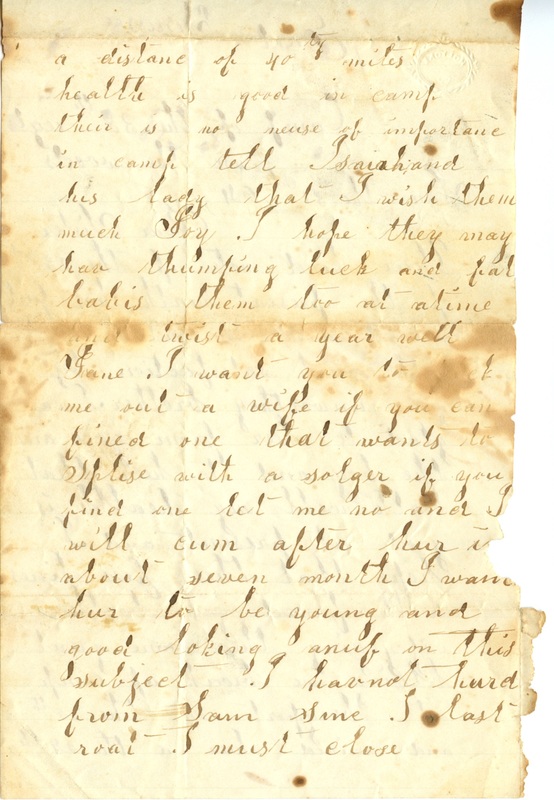 a distanc of 40 ty miles
health is good in camp
their is no neuse of importanc
in camp tell Isaiah and
his lady that I wish them
much Joy . I hope they may
hav thumping luck and fat
babis them too at atime
and twist a year well
Jane . I want you to
me out a wife if you can
fined one that wants to
splise with a solger if you
find one let me no and I
will cum after hur i
about seven month I wan
hur to be young and
good loking anuf on this
subject . I havnot hurd
from Sam sinc . I last
roat . I must close